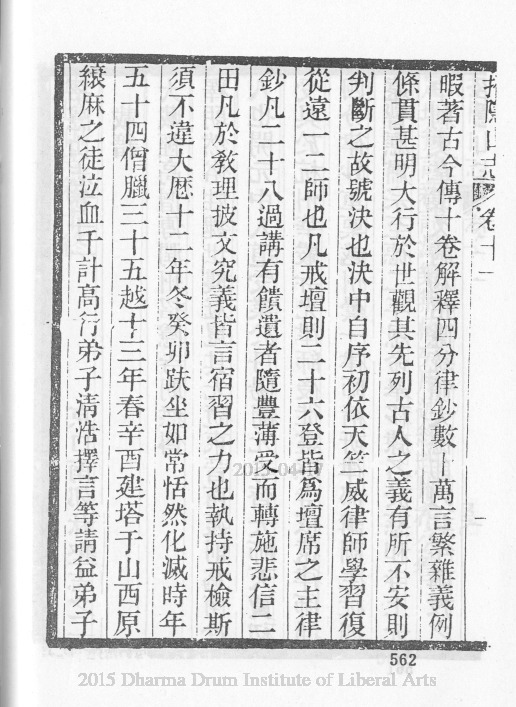 招隱山志 卷十一
暇著古今傳十卷解釋四分律鈔數十萬言繁雜義例
條貫甚明大行於世觀其先列古人之義有所不安則
判斷之故號決也決中自序初依天竺威律師學習復
從遠一二師也凡戒壇則二十六登皆爲壇席之主律
鈔凡二十八過講有饋遺者隨豐薄受而轉施悲信二
田凡於教理披文究義皆言宿習之力也執持戒檢斯
須不違大厯十二年冬癸卯趺坐如常恬然化滅時年
五十四僧臘三十五越十三年春辛酉建塔于山西原
縗麻之徒泣血千計高行弟子清浩擇言等請益弟子
2015-04-17
562
2015 Dharma Drum Institute of Liberal Arts